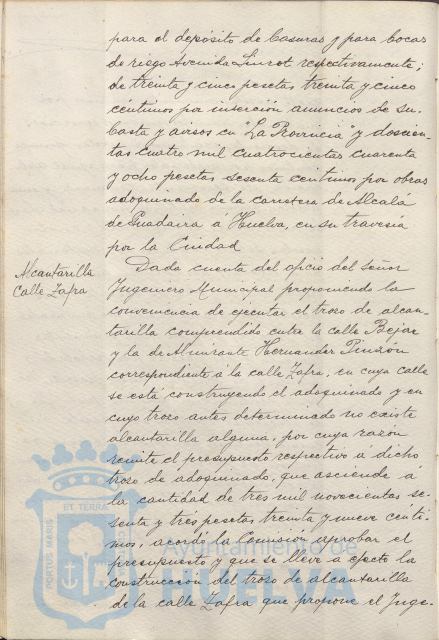 para el depósito de basuras y para bocas
de riego Avenida Sundheim respectivamente;
de treinta y cinco pesetas treinta y cinco
céntimos por inserción anuncios de su-
basta y avisos en "La Provincia" y doscien-
tas cuatro mil cuatrocientas cuarenta
y ocho pesetas sesenta céntimos por obras
adoquinado de la carretera de Alcalá
de Guadaira á Huelva, en su travesía
por la Ciudad
Alcantarilla
Calle Zafra
Dada cuenta del oficio del Señor
Ingeniero Municipal proponiendo la
conveniencia de ejecutar el trozo de alcan-
tarilla comprendido entre la calle Bejar
y la de Almirante Hernandez Pinzón
correspondiente á la calle Zafra, en cuya calle
se está construyendo el adoquinado y en
cuyo trozo antes determinado no existe
alcantarilla alguna, por cuya razón
remite el presupuesto respectivo a dicho
trozo de adoquinado, que asciende á
la cantidad de tres mil novecientas se-
senta y tres pesetas treinta y nueve cénti-
mos, acordó la Comisión aprobar el
presupuesto y que se lleve a efecto la
construcción del trozo de alcantarilla
de la calle Zafra que propone el Inge-
PORTUS MARIS ET TERRAE
Ayuntamiento de
HUELVA